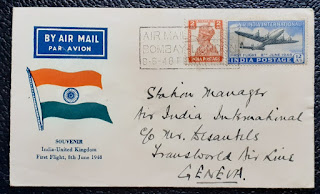 BY AIR MAIL
PAR AVION
AIR MAIL
BOMBAY
8-6-48
INDIA POSTAGE
AIR INDIA INTERNATIONAL
FIRST FLIGHT 8TH JUNE 1948
INDIA POSTAGE
Station Manager
Air India International
c/o Mr. Desautels
Transworld Air Line
GENEVA.
SOUVENIR
India-United Kingdom
First Flight, 8th June 1948